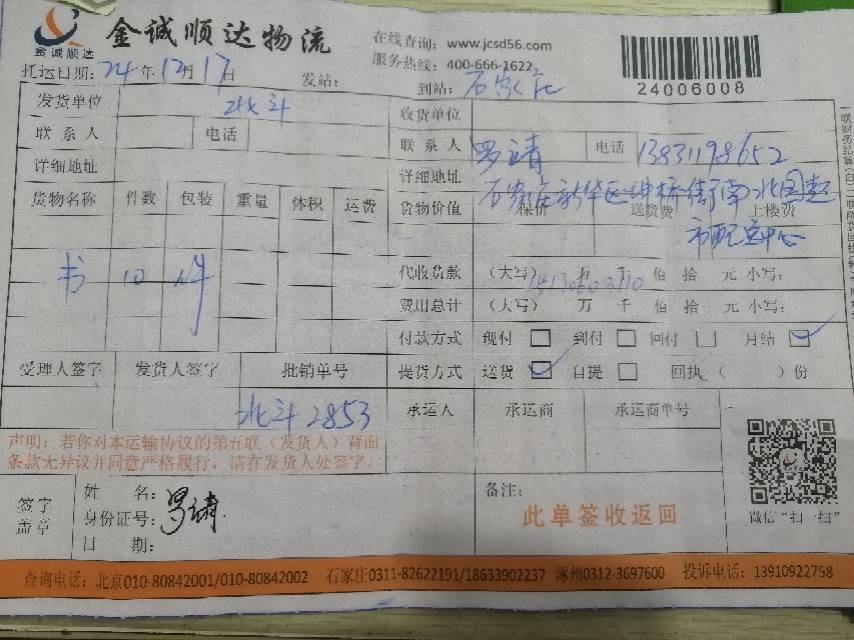 金诚顺达
金诚顺达物流
在线查询：www.jcsd56.com
服务热线：400-666-1622
24006008
托运日期：24年12月17日 发站： 到站：石家庄
发货单位 北斗 收货单位
联系人 电话 联系人 罗靖 电话 13831198652
详细地址 详细地址 石家庄新华区 桥街南北国超
市配送中心
货物名称 件数 包装 重量 体积 运费 货物价值 保价 送货费 上楼费
书 10 件
代收货款 （大写） 万 千 佰 拾 元 小写：
费用总计 （大写） 万 千 佰 拾 元 小写：
付款方式 现付 到付 回付 月结
受理人签字 发货人签字 批销单号 提货方式 送货 自提 回执（ ）份
北斗 2853 承运人 承运商 承运商单号
声明：若你对本运输协议的第五联（发货人）背面
条款无异议并同意严格履行，请在发货人处签字。
签字
盖章
姓 名：
身份证号：
罗靖
日 期：
备注：
此单签收返回
微信“扫一扫”
查询电话：北京010-80842001/010-80842002 石家庄0311-82622191/18633902237 涿州0312-3697600 投诉电话：13910922758